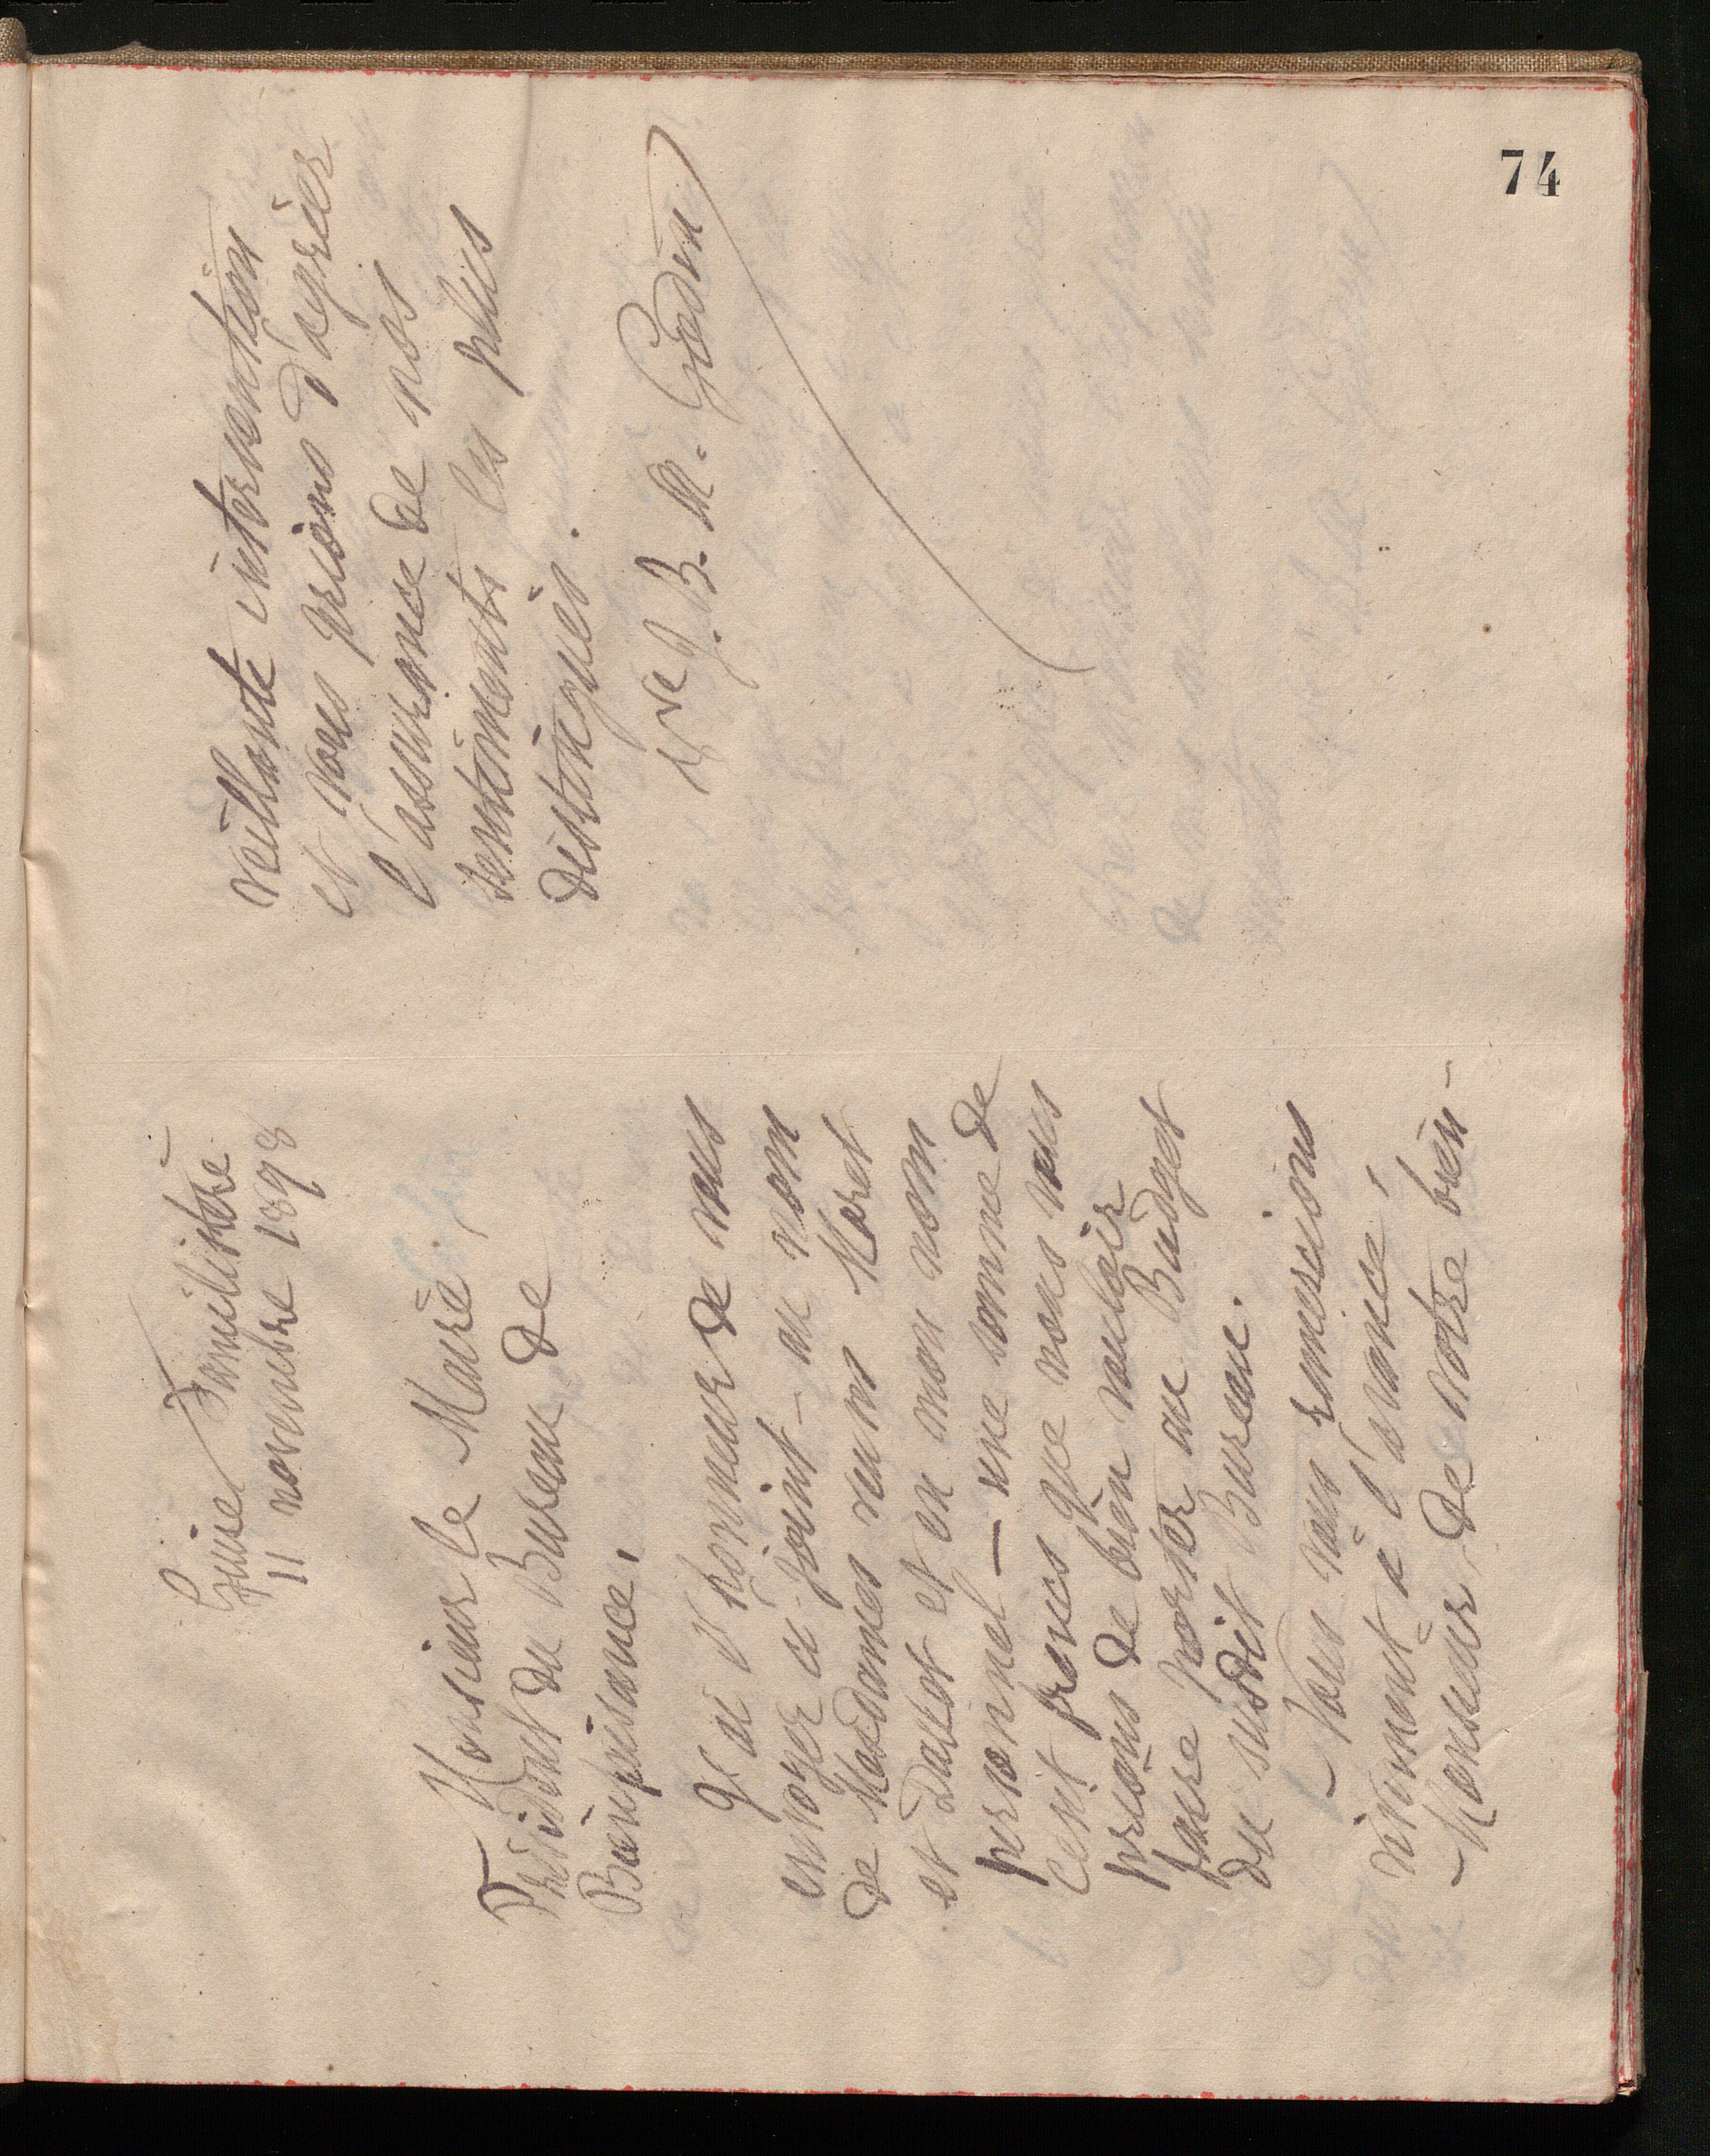 74
Guise Familistère
11 novembre 1898
Monsieur le Maire,
Président du Bureau de
Bienfaisance,
J'ai l'honneur de vous
envoyer ci-joint - au nom
de Mesdames veuves Moret
et Dallet et en mon nom
personnel — une somme de
cent francs que nous vous
prions de bien vouloir
faire porter au Budget
du susdit Bureau.
Nous vous remercions
vivement à l'avance,
Monsieur, de votre bien-
veillante intervention
et vous prions d'agréer
l'assurance de nos
sentiments les plus
distingués.
Vve J. B. A. Godin